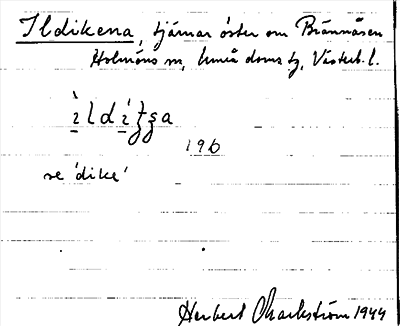 Ildikena, tjärnar öster om Brännåsen
Holmöns sn, Umeå doms tg, Västerb. l.
196
se 'dike'
Herbert Markström 1944